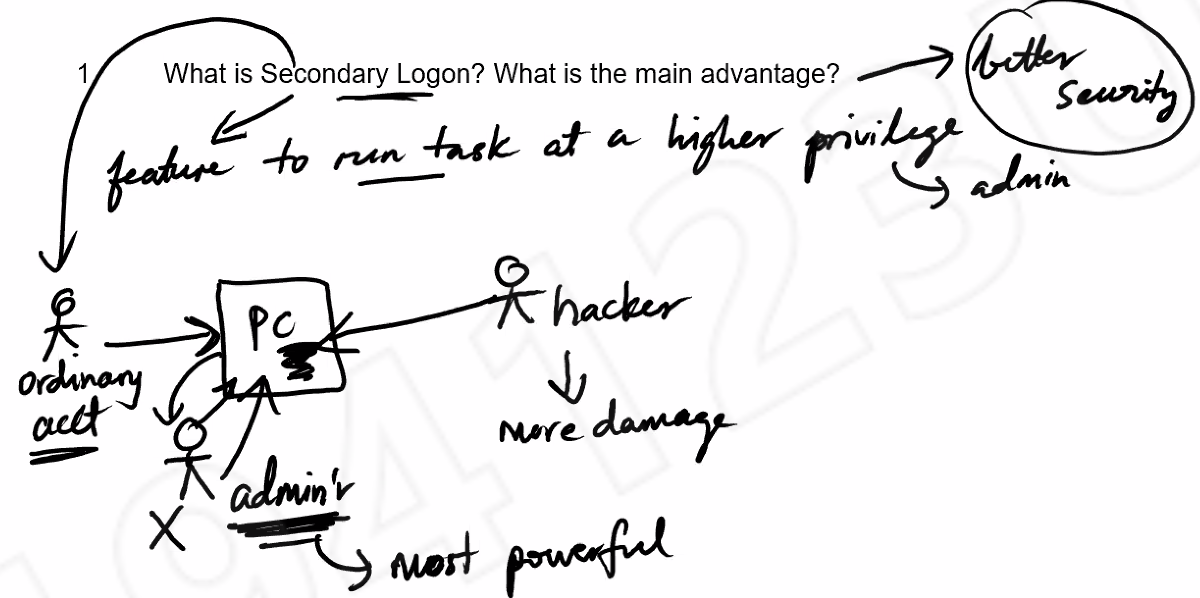 1 What is Secondary Logon? What is the main advantage?
better
security
feature to run task at a higher privilege
admin
PC
hacker
ordinary
acct
more damage
admin'r
X
most powerful